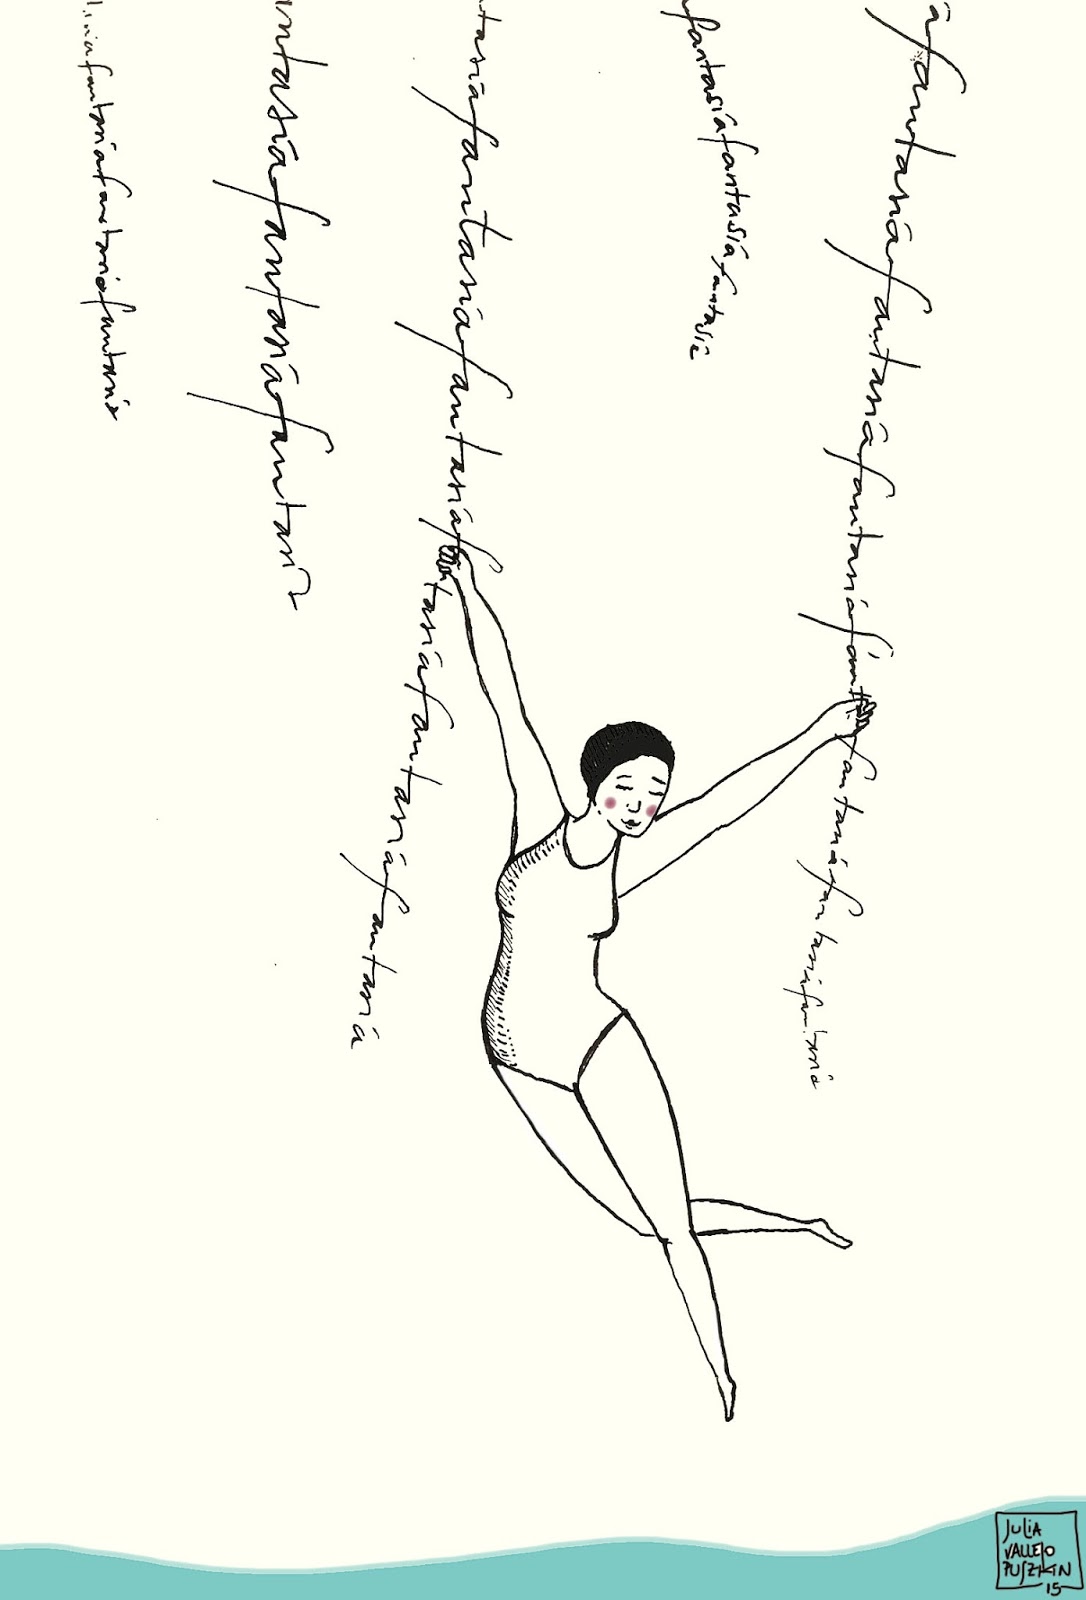 fantasíafantasíafantasía
antasíafantasíafantasía
tasíafantasíafantasíafantasíafantasíafantasía
fantasíafantasíafantasía
afantasíafantasíafantasíafantafantasíafantasíafantasía
JULIA
VALLEJO
PUSZKIN
15